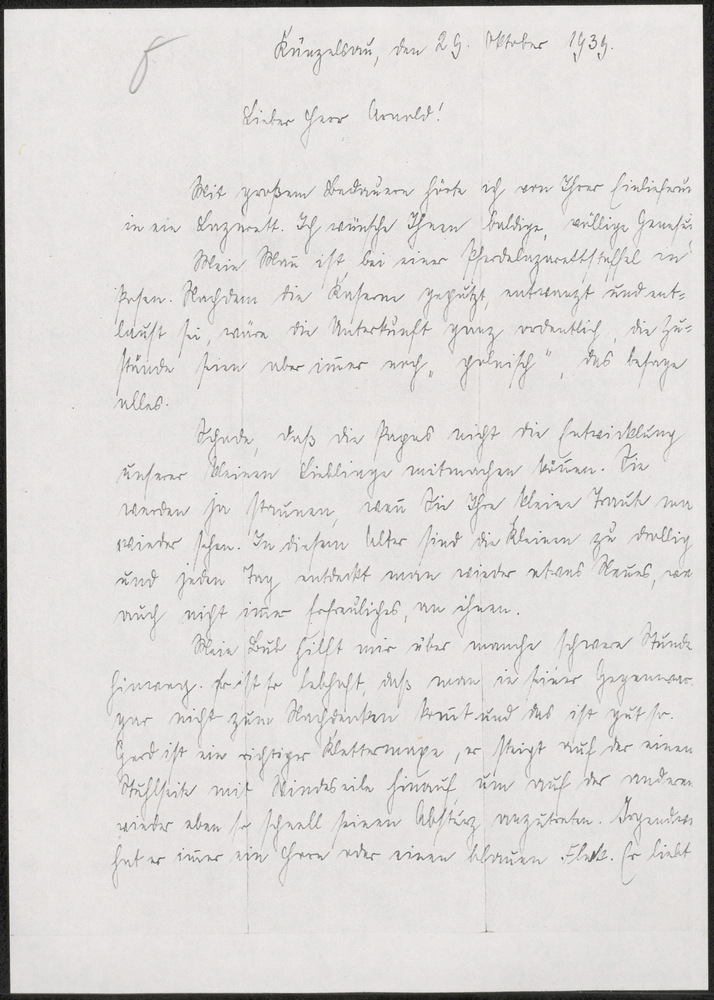 Künzelsau, den 29. Oktober 1939.
Lieber Herr Arnold!
Mit großem Bedauern hörte ich von Ihrer Einlieferun
in ein Lazarett. Ich wünsche Ihnen baldige, völlige Genesu
Mein Mañ ist bei einer Pferdelazarettstaffel in
Posen. Nachdem die Kaserne geputzt, entwanzt und ent=
laust sei, wäre die Unterkunft ganz ordentlich, die Zu=
stände seien aber im̄er noch „polnisch", das besage
alles.
Schade, daß die Papas nicht die Entwicklung
unserer kleinen Lieblinge mitmachen kön̄en. Sie
werden ja staunen, wen̄ Sie Ihre kleine Traute ma
wieder sehen. In diesem Alter sind die Kleinen zu drollig
und jeden Tag entdeckt man wieder etwas Neues, we
auch nicht im̄er Erfreuliches, an ihnen.
Mein Bub hilft mir über manche schwere Stunde
hinweg. Er ist so lebhaft, daß man in seiner Gegenwar
gar nicht zum Nachdenken kom̄t und das ist gut so.
Gerd ist ein richtiger Klettermaxe, er steigt auf der einen
Stuhlseite mit Windeseile hinauf, um auf der anderen
wieder eben so schnell seinen Absturz anzutreten. Irgendwo
hat er im̄er ein Horn oder einen blauen Fleck. Er liebt